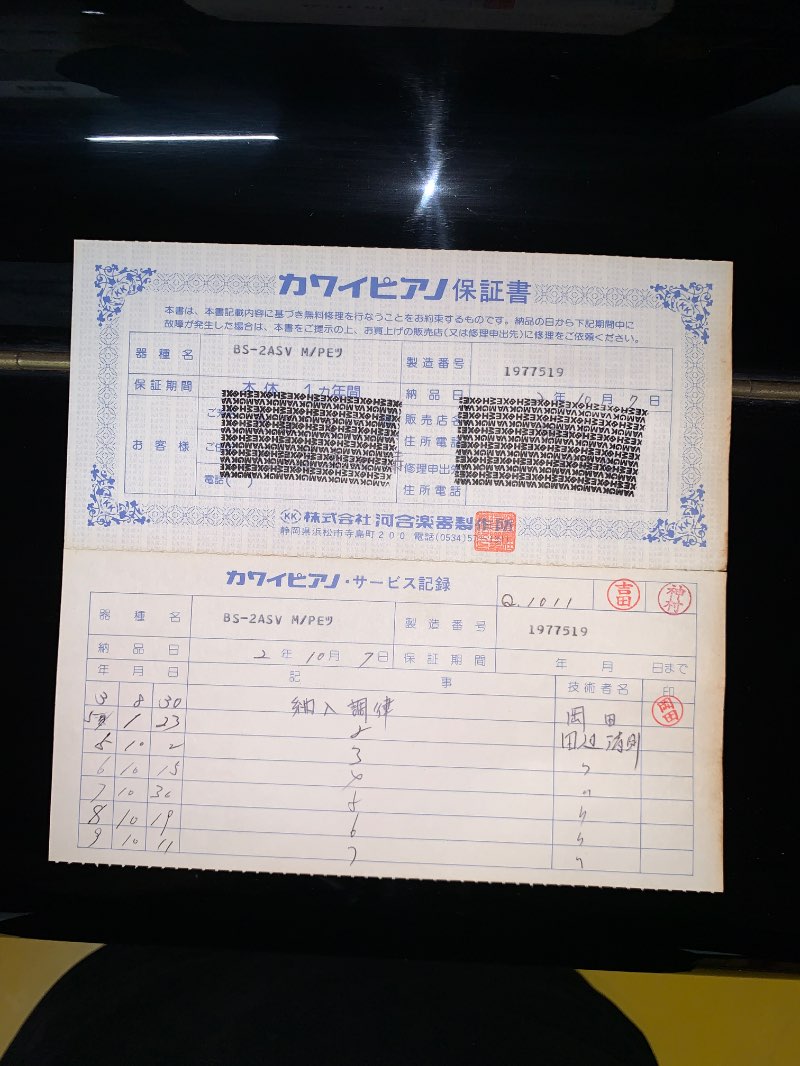 カワイピアノ 保証書
本書は、本書記載内容に基づき無料修理を行なうことをお約束するものです。納品の日から下記期間中に
故障が発生した場合は、本書をご提示の上、お買上げの販売店(又は修理申出先)に修理をご依頼ください。
器種名 BS-2ASV M/PEツ 製造番号 1977519
保証期間 本体 1カ年間 納品日 年 10月 7日
お客様 電話( ) 販売店名
住所電話
修理申出先
住所電話
KK 株式会社 河合楽器製作所
静岡県浜松市寺島町200 電話(0534)57
カワイピアノ・サービス記録
Q.1011 吉田 神村
器種名 BS-2ASV M/PEツ 製造番号 1977519
納品日 2年 10月 7日 保証期間 年 月 日まで
年 月 日 記事 技術者名 印
3 8 30 納入調律 岡田 岡田
5 1 23 2 田辺
5 10 2 3 〃
6 10 15 4 〃
7 10 30 5 〃
8 10 19 6 〃
9 10 11 7 〃